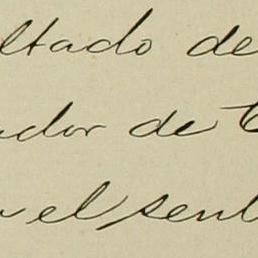 ltado de
ador de
el sent